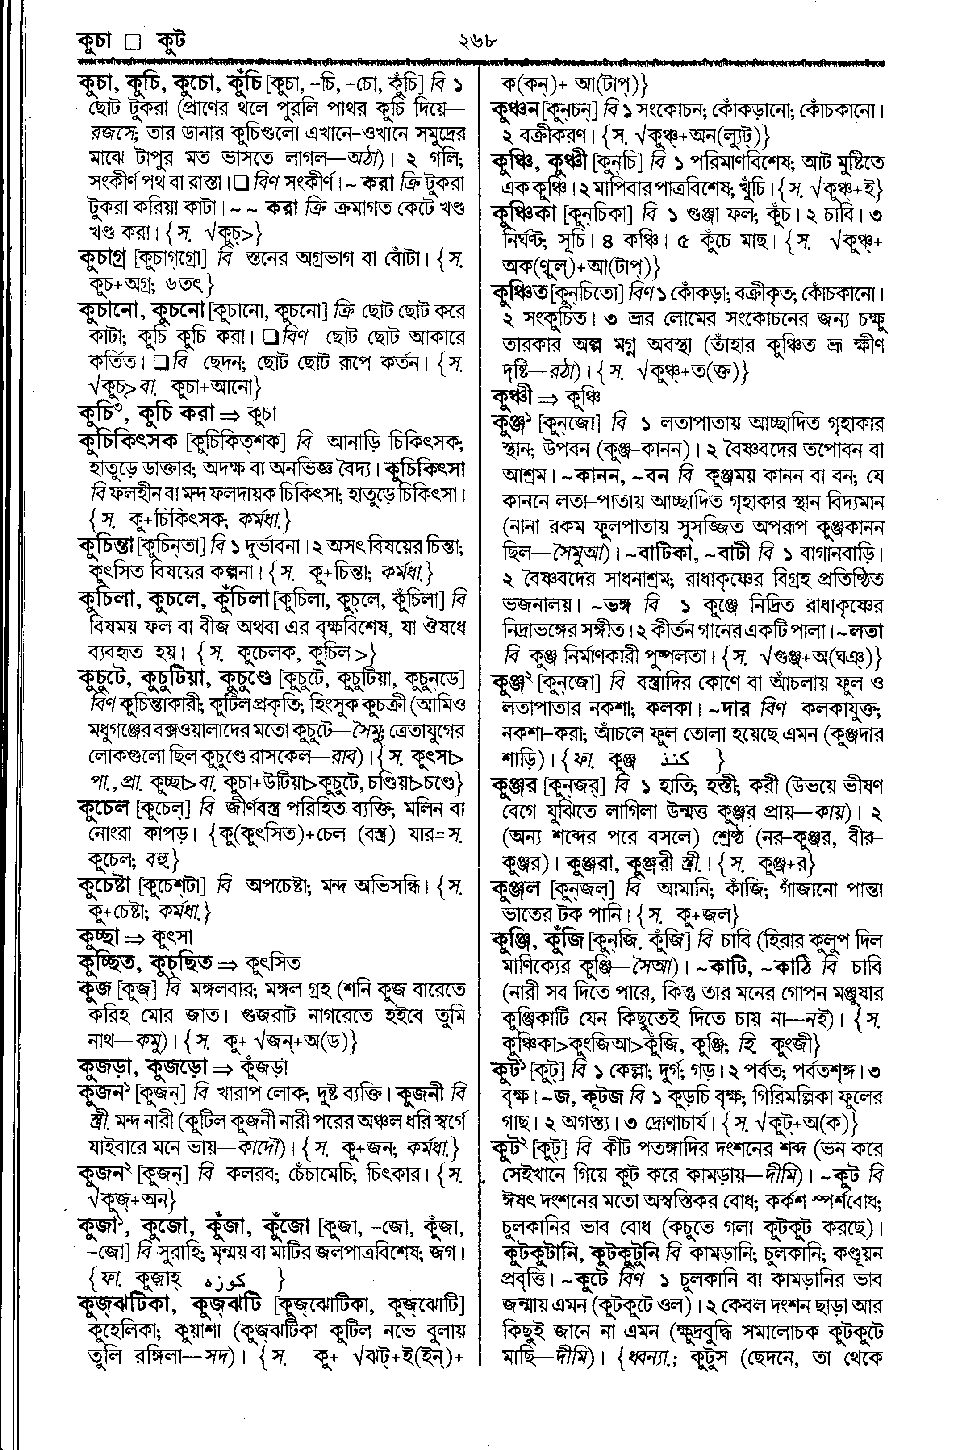 কুচা □ কুট
২৬৮
কুচা, কুচি, কুচো, কুঁচি [কুচা, -চি, -চো, কুঁচি] বি ১
ছোট টুকরা (প্রাণের থলে পুরলি পাথর কুচি দিয়ে—
রজসে; তার ডানার কুচিগুলো এখানে-ওখানে সমুদ্রের
মাঝে টাপুর মত ভাসতে লাগল—অঠা)। ২ গলি;
সংকীর্ণ পথ বা রাস্তা। □ বিণ সংকীর্ণ। ~ করা ক্রি টুকরা
টুকরা করিয়া কাটা। ~ ~ করা ক্রি ক্রমাগত কেটে খণ্ড
খণ্ড করা। {স. √কুচ্>}
কুচাগ্র [কুচাগ্‌গ্রো] বি স্তনের অগ্রভাগ বা বোঁটা। {স.
কুচ+অগ্র; ৬তৎ}
কুচানো, কুচনো [কুচানো, কুচনো] ক্রি ছোট ছোট করে
কাটা; কুচি কুচি করা। □ বিণ ছোট ছোট আকারে
কর্তিত। □ বি ছেদন; ছোট ছোট রূপে কর্তন। {স.
√কুচ্> বা. কুচা+আনো}
কুচি৩, কুচি করা ⇒ কুচা
কুচিকিৎসক [কুচিকিত্‌শক] বি আনাড়ি চিকিৎসক;
হাতুড়ে ডাক্তার; অদক্ষ বা অনভিজ্ঞ বৈদ্য। কুচিকিৎসা
বি ফলহীন বা মন্দ ফলদায়ক চিকিৎসা; হাতুড়ে চিকিৎসা।
{স. কু+চিকিৎসক; কর্মধা.}
কুচিন্তা [কুচিন্‌তা] বি ১ দুর্ভাবনা। ২ অসৎ বিষয়ের চিন্তা;
কুৎসিত বিষয়ের কল্পনা। {স. কু+চিন্তা; কর্মধা.}
কুচিলা, কুচলে, কুঁচিলা [কুচিলা, কুচ্‌লে, কুঁচিলা] বি
বিষময় ফল বা বীজ অথবা এর বৃক্ষবিশেষ, যা ঔষধে
ব্যবহৃত হয়। {স. কুচেলক, কুচিল >}
কুচুটে, কুচুটিয়া, কুচুণ্ডে [কুচুটে, কুচুটিয়া, কুচুন্‌ডে]
বিণ কুচিন্তাকারী; কুটিলপ্রকৃতি; হিংসুক কুচক্রী (আমিও
মধুগঞ্জের বক্সওয়ালাদের মতো কুচুটে—সৈমু; ত্রেতাযুগের
লোকগুলো ছিল কুচুণ্ডে রাসকেল—রাব)। {স. কুৎসা>
পা., প্রা. কুচ্ছা> বা. কুচা+উটিয়া>কুচুটে, চণ্ডিয়া>চণ্ডে}
কুচেল [কুচেল্] বি জীর্ণবস্ত্র পরিহিত ব্যক্তি; মলিন বা
নোংরা কাপড়। {কু(কুৎসিত)+চেল (বস্ত্র) যার=স.
কুচেল; বহু}
কুচেষ্টা [কুচেশ্‌টা] বি অপচেষ্টা; মন্দ অভিসন্ধি। {স.
কু+চেষ্টা; কর্মধা.}
কুচ্ছা ⇒ কুৎসা
কুচ্ছিত, কুচ্‌ছিত ⇒ কুৎসিত
কুজ [কুজ্] বি মঙ্গলবার; মঙ্গল গ্রহ (শনি কুজ বারেতে
করিহ মোর জাত। গুজরাট নাগরেতে হইবে তুমি
নাথ—কমু)। {স. কু+ √জন্+অ(ড)}
কুজড়া, কুজড়ো ⇒ কুঁজড়া
কুজন১ [কুজন্] বি খারাপ লোক; দুষ্ট ব্যক্তি। কুজনী বি
স্ত্রী. মন্দ নারী (কুটিল কুজনী নারী পরের অঞ্চল ধরি স্বর্গে
যাইবারে মনে ভায়—কাদৌ)। {স. কু+জন; কর্মধা.}
কুজন২ [কুজন্] বি কলরব; চেঁচামেচি; চিৎকার। {স.
√কুজ্+অন}
কুজা১, কুজো, কুঁজা, কুঁজো [কুজা, -জো, কুঁজা,
-জো] বি সুরাহি; মৃন্ময় বা মাটির জলপাত্রবিশেষ; জগ।
{ফা. কূজাহ্ کوزه }
কুজ্ঝটিকা, কুজ্ঝটি [কুজ্‌ঝোটিকা, কুজ্‌ঝোটি]
কুহেলিকা; কুয়াশা (কুজ্ঝটিকা কুটিল নভে বুলায়
তুলি রঙ্গিলা—সদ)। {স. কু+ √ঝট্+ই(ইন্)+
ক(কন্)+ আ(টাপ্)}
কুঞ্চন [কুন্‌চন্] বি ১ সংকোচন; কোঁকড়ানো; কোঁচকানো।
২ বক্রীকরণ। {স. √কুঞ্চ্+অন(ল্যুট্)}
কুঞ্চি, কুঞ্চী [কুন্‌চি] বি ১ পরিমাণবিশেষ; আট মুষ্টিতে
এক কুঞ্চি। ২ মাপিবার পাত্রবিশেষ; খুঁচি। {স. √কুঞ্চ্+ই}
কুঞ্চিকা [কুন্‌চিকা] বি ১ গুঞ্জা ফল; কুঁচ। ২ চাবি। ৩
নির্ঘণ্ট; সূচি। ৪ কঞ্চি। ৫ কুঁচে মাছ। {স. √কুঞ্চ্+
অক(ণ্বুল্)+আ(টাপ্)}
কুঞ্চিত [কুন্‌চিতো] বিণ ১ কোঁকড়া; বক্রীকৃত; কোঁচকানো।
২ সংকুচিত। ৩ ভ্রূর লোমের সংকোচনের জন্য চক্ষু
তারকার অল্প মগ্ন অবস্থা (তাঁহার কুঞ্চিত ভ্রূ ক্ষীণ
দৃষ্টি—রঠা)। {স. √কুঞ্চ্+ত(ক্ত)}
কুঞ্চী ⇒ কুঞ্চি
কুঞ্জ১ [কুন্‌জো] বি ১ লতাপাতায় আচ্ছাদিত গৃহাকার
স্থান; উপবন (কুঞ্জ-কানন)। ২ বৈষ্ণবদের তপোবন বা
আশ্রম। ~কানন, ~বন বি কুঞ্জময় কানন বা বন; যে
কাননে লতা-পাতায় আচ্ছাদিত গৃহাকার স্থান বিদ্যমান
(নানা রকম ফুলপাতায় সুসজ্জিত অপরূপ কুঞ্জকানন
ছিল—সৈমুআ)। ~বাটিকা, ~বাটী বি ১ বাগানবাড়ি।
২ বৈষ্ণবদের সাধনাশ্রম; রাধাকৃষ্ণের বিগ্রহ প্রতিষ্ঠিত
ভজনালয়। ~ভঙ্গ বি ১ কুঞ্জে নিদ্রিত রাধাকৃষ্ণের
নিদ্রাভঙ্গের সঙ্গীত। ২ কীর্তন গানের একটি পালা। ~লতা
বি কুঞ্জ নির্মাণকারী পুষ্পলতা। {স. √গুঞ্জ+অ(ঘঞ্)}
কুঞ্জ২ [কুন্‌জো] বি বস্ত্রাদির কোণে বা আঁচলায় ফুল ও
লতাপাতার নকশা; কলকা। ~দার বিণ কলকাযুক্ত;
নকশা-করা; আঁচলে ফুল তোলা হয়েছে এমন (কুঞ্জদার
শাড়ি)। {ফা. কুঞ্জ کنذ }
কুঞ্জর [কুন্‌জর্] বি ১ হাতি; হস্তী; করী (উভয়ে ভীষণ
বেগে যুঝিতে লাগিলা উন্মত্ত কুঞ্জর প্রায়—কায়)। ২
(অন্য শব্দের পরে বসলে) শ্রেষ্ঠ (নর-কুঞ্জর, বীর-
কুঞ্জর)। কুঞ্জরা, কুঞ্জরী স্ত্রী.। {স. কুঞ্জ+র}
কুঞ্জল [কুন্‌জল্] বি আমানি; কাঁজি; গাঁজানো পান্তা
ভাতের টক পানি। {স. কু+জল}
কুঞ্জি, কুঁজি [কুন্‌জি, কুঁজি] বি চাবি (হিরার কুলুপ দিল
মাণিক্যের কুঞ্জি—সৈআ)। ~কাটি, ~কাঠি বি চাবি
(নারী সব দিতে পারে, কিন্তু তার মনের গোপন মঞ্জুষার
কুঞ্জিকাটি যেন কিছুতেই দিতে চায় না—নই)। {স.
কুঞ্চিকা>কুংজিআ>কুঁজি, কুঞ্জি; হি. কুংজী}
কুট১ [কুট্] বি ১ কেল্লা; দুর্গ; গড়। ২ পর্বত; পর্বতশৃঙ্গ। ৩
বৃক্ষ। ~জ, কূটজ বি ১ কুড়চি বৃক্ষ; গিরিমল্লিকা ফুলের
গাছ। ২ অগস্ত্য। ৩ দ্রোণাচার্য। {স. √কুট্+অ(ক)}
কুট২ [কুট্] বি কীট পতঙ্গাদির দংশনের শব্দ (ভন করে
সেইখানে গিয়ে কুট করে কামড়ায়—দীমি)। ~কুট বি
ঈষৎ দংশনের মতো অস্বস্তিকর বোধ; কর্কশ স্পর্শবোধ;
চুলকানির ভাব বোধ (কচুতে গলা কুটকুট করছে)।
কুটকুটানি, কুটকুটুনি বি কামড়ানি; চুলকানি; কণ্ডূয়ন
প্রবৃত্তি। ~কুটে বিণ ১ চুলকানি বা কামড়ানির ভাব
জন্মায় এমন (কুটকুটে ওল)। ২ কেবল দংশন ছাড়া আর
কিছুই জানে না এমন (ক্ষুদ্রবুদ্ধি সমালোচক কুটকুটে
মাছি—দীমি)। {ধ্বন্যা.; কুটুস (ছেদনে, তা থেকে